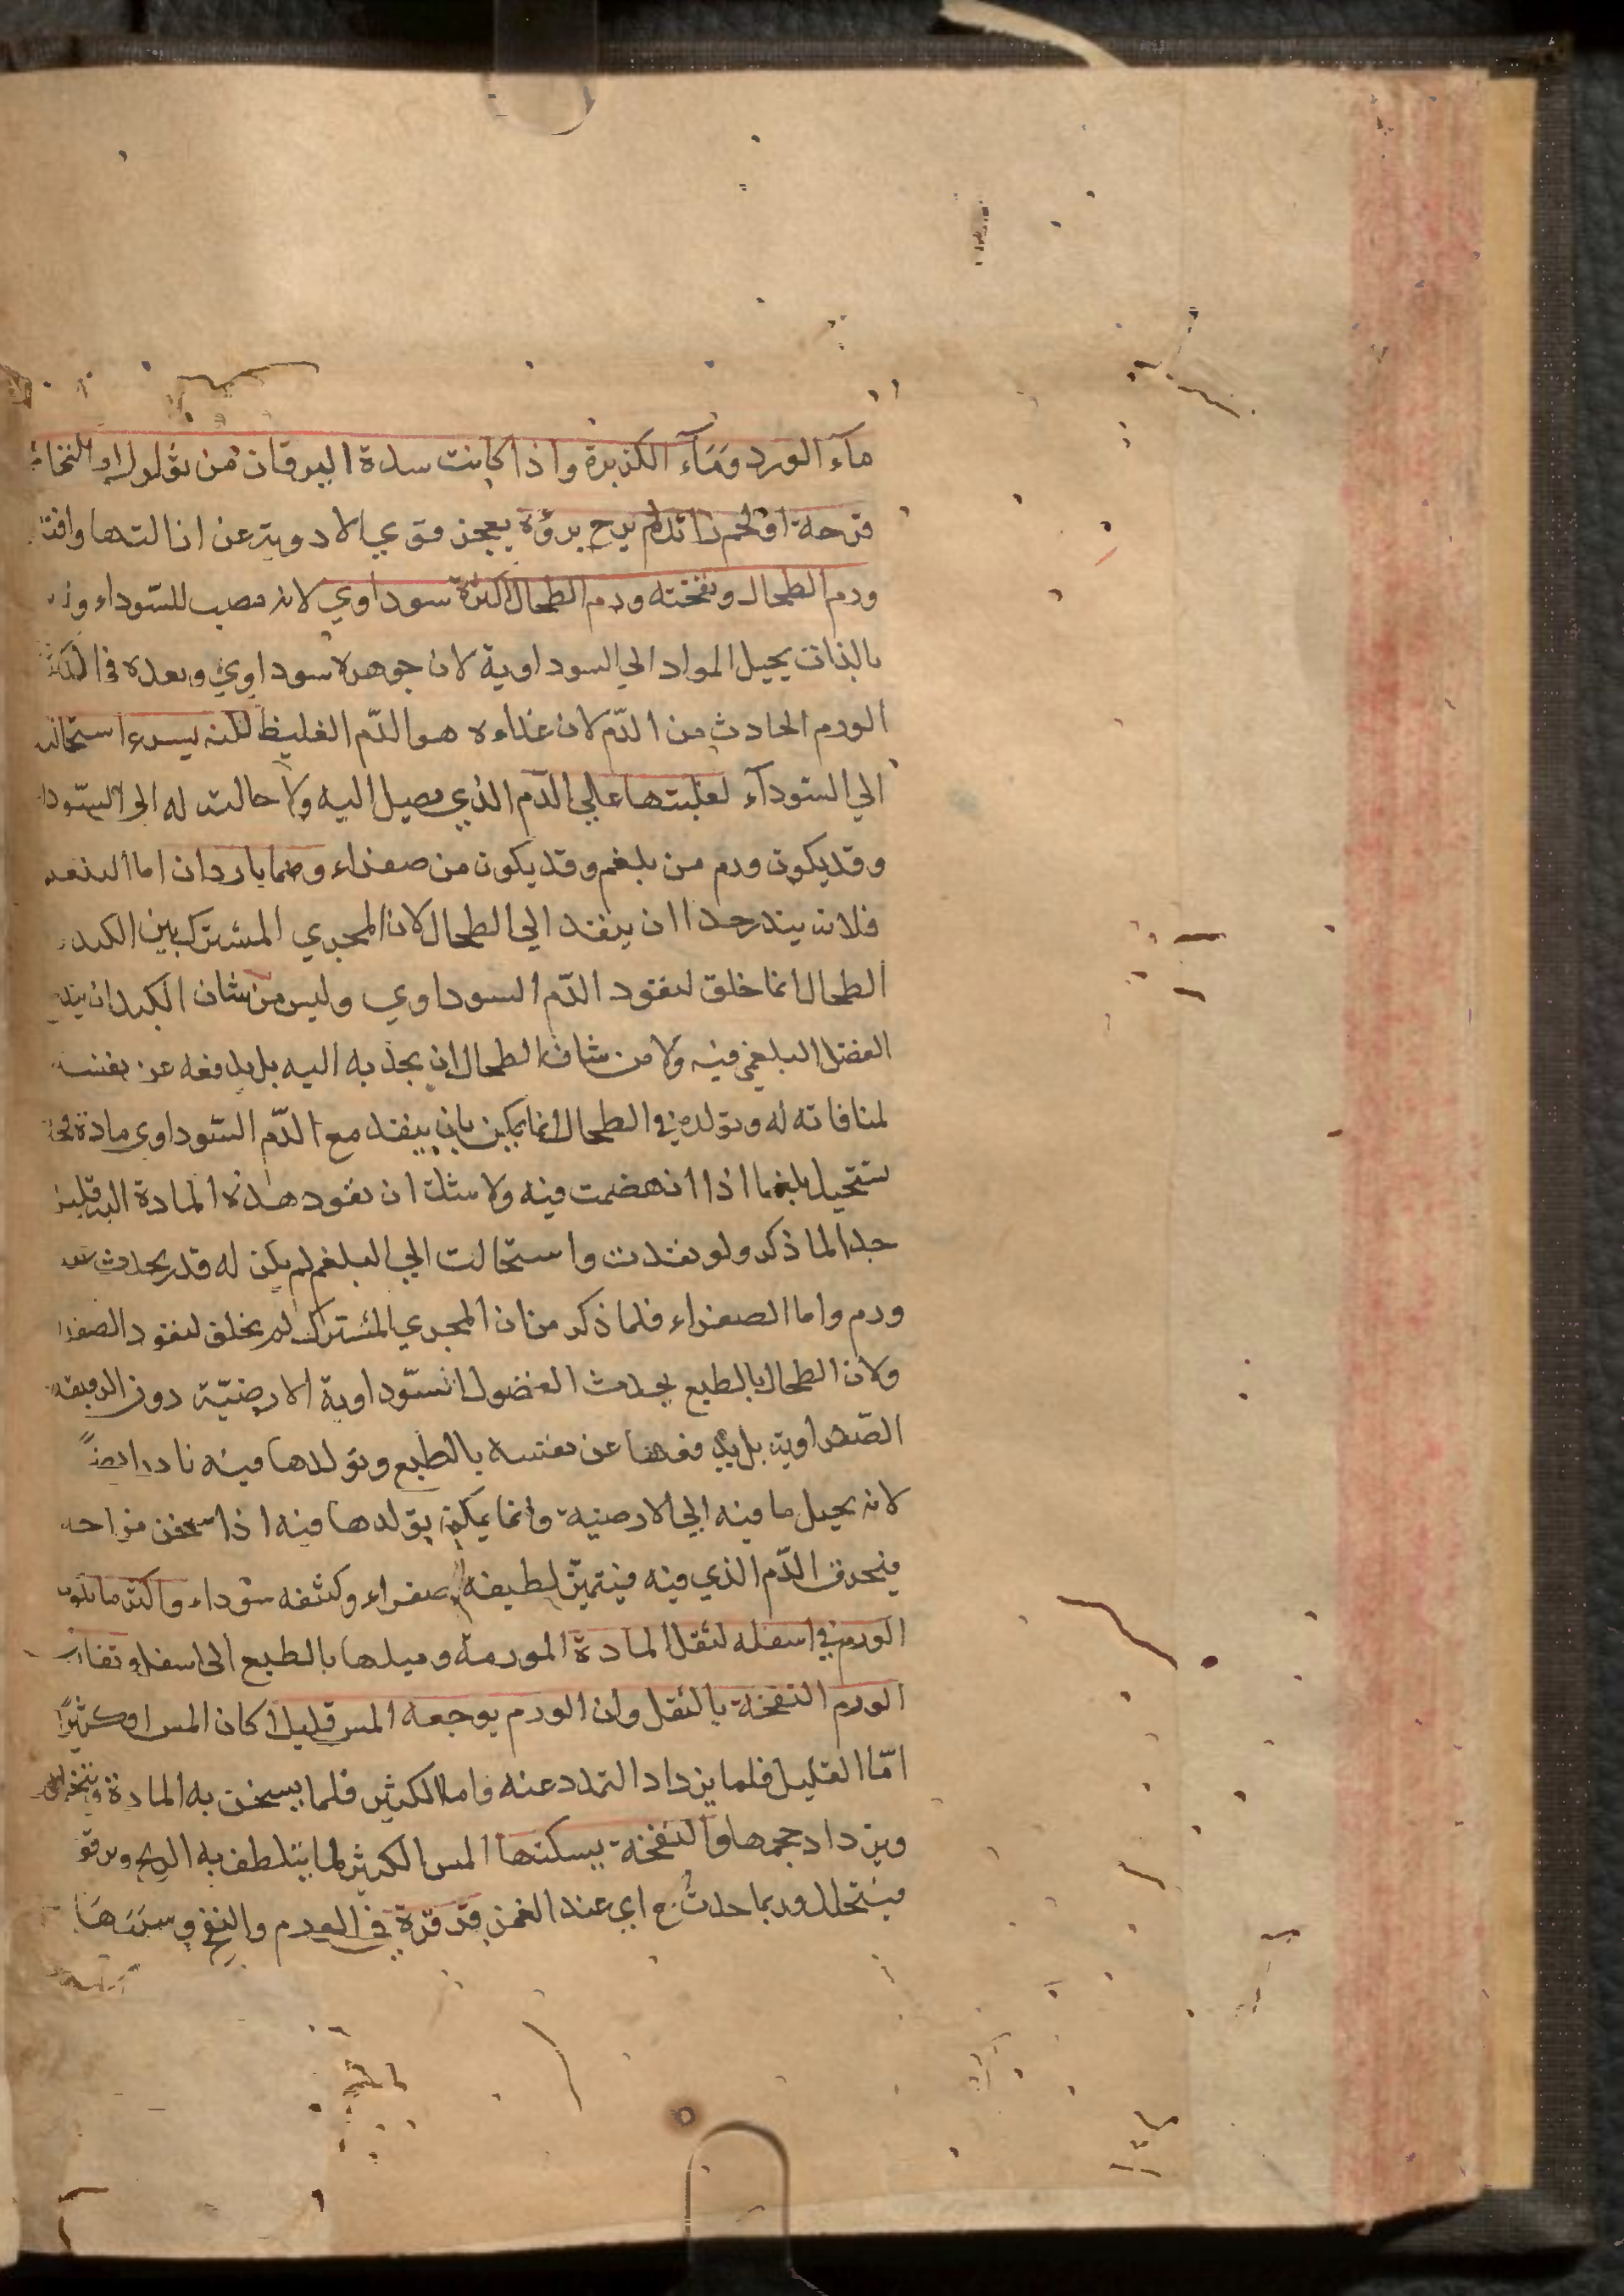 مآء الورد ومَآء الكزبرة واذا كانت سدة اليرقان من ثؤلول او التحام
قرحة او لحم زائد لم يرج برؤه بعجز قوي الادوية عن ازالتها
ورم الطحال ونفخته ورم الطحال اكثره سوداوي لانه مصب للسّوداء
بالذات يحيل المواد الي السوداوية لان جوهره سوداوي وبعده في الكثرة
الورم الحادث من الدّم لان غذاءه هو الدّم الغليظ لكنه يسرع استحالته
الي السّودآء لغلبتها علي الدّم الذي يصل اليه ولاحالته له الي السّوداء
وقد يكون ورم من بلغم وقد يكون من صفراء وهما نادران اما البلغم
فلانه يندر جدا ان ينفذ الي الطحال لان المجري المشترك بين الكبد و
الطحال انما خلق لنفوذ الدّم السوداوي وليس من شان الكبد ان
الفضل البلغمي فيه ولا من شان الطحال ان يجذبه اليه بل يدفعه عن نفسه
لمنافاته له وتولده في الطحال انما يمكن بان ينفذ مع الدّم السّوداوي مادة
تستحيل بلغما اذا انهضمت فيه ولا شك ان نفوذ هذه المادة اليه قليل
جدا لما ذكر ولو نفذت واستحالت الي البلغم لم يكن له قدر يحدث عنه
ورم واما الصفراء فلما ذكر من ان المجري المشترك لم يخلق لنفوذ الصفراء
ولان الطحال بالطبع يجذب الفضول السّوداوية الارضيّة دون الرقيقة
الصّفراوية بل يدفعها عن نفسه بالطبع وتولدها فيه نادر ايضاً
لانه يحيل ما فيه الي الارضية وانما يمكن تولدها فيه اذا سخن مزاجه
فيحرق الدّم الذي فيه فيتميّز لطيفه صفراء وكثيفه سوداء واكثر ما يكون
الورم في اسفله لثقل المادة المورمة وميلها بالطبع الي اسفل وتفارق
الورم النفخة بالثقل وان الورم يوجعه المس قليلا كان المس او كثيرًا
امّا القليل فلما يزداد التمدد عنه واما الكثير فلما يسخن به المادة
ويزداد حجمها والنفخة يسكنها المس الكثير لما يتلطف به الريح ويرق و
فيتحلل وربما حدث ح اي عند الغمز قرقرة في الورم والنفخ وسببهَا